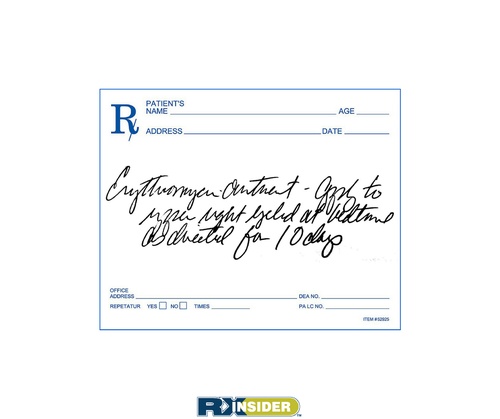 Rx
PATIENT'S
NAME AGE
ADDRESS DATE
Erythromycin Ointment - Apply to
upper right eyelid at bedtime
as directed for 10 days
OFFICE
ADDRESS DEA NO.
REPETATUR YES NO TIMES PA LC NO.
ITEM #32925
RXINSIDER TM